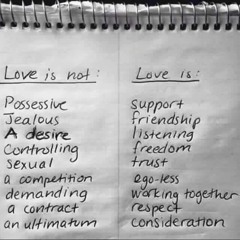 Love is not:
Possessive
Jealous
A desire
Controlling
Sexual
a competition
demanding
a contract
an ultimatum
Love is:
support
friendship
listening
freedom
trust
ego-less
working together
respect
consideration